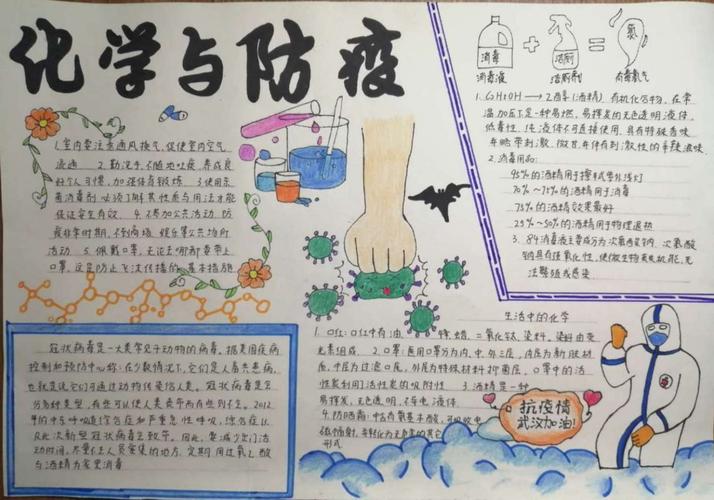 化学与防疫
1.室内要注意通风换气,促使室内空气
流通 2.勤洗手,不随地吐痰,养成良
好个人习惯,加强体育锻炼 3.使用杀
菌消毒剂,必须了解其性质与用法才能
保证安全有效 4.不参加公共活动 防
疫非常时期,不到商场 娱乐等公共场所
活动 5.佩戴口罩,无论去哪都要带上
口罩,这是防止飞沫传播的基本措施
冠状病毒是一大类常见于动物的病毒。据美国疾病
控制和预防中心称:在少数情况下,它们是人畜共患病,
也就是说它们可通过动物传染给人类。冠状病毒是
分多种类型,有些可以使人类患病而有些则不会。2012
年的中东呼吸道综合征和严重急性呼吸综合征以
及此次新型冠状病毒三致命。因此,要减少出门活
动时间,尽量不去人员密集的地方,定期用过氧乙酸
与酒精为家里消毒
消毒
消毒液
+
洁厕
洁厕剂
=
氯
有毒氯气
1.C₂H5OH → 乙醇(酒精) 有机化合物,在常
温加压下是一种易燃,易挥发的无色透明液体,
低毒性,纯液体不可直接使用,具有特殊香味
并略带刺激,微甘,并伴有刺激性的辛辣滋味
2.消毒用品:
95%的酒精用于擦拭紫外线灯
70%~75%的酒精用于消毒
75%的酒精效果最好
25%~50%的酒精用于物理退热
3. 84消毒液主要成分为次氯酸钠 次氯酸
钠具有强氧化性,使微生物丧失机能,无
法繁殖或感染
生活中的化学
1.口红:口红中有油、蜡、二氧化钛、染料,染料由炭
元素组成. 2.口罩:医用口罩分为内,中,外三层,内层为亲肤材
质,中层为过滤口层,外层为特殊材料抑菌层。口罩中的活
性炭利用活性炭的吸附性 3.酒精是一种
易挥发,无色透明,不导电液体,
4.防晒霜:中含有氨基苯酸,可吸收电
形式
抗疫情
武汉加油!